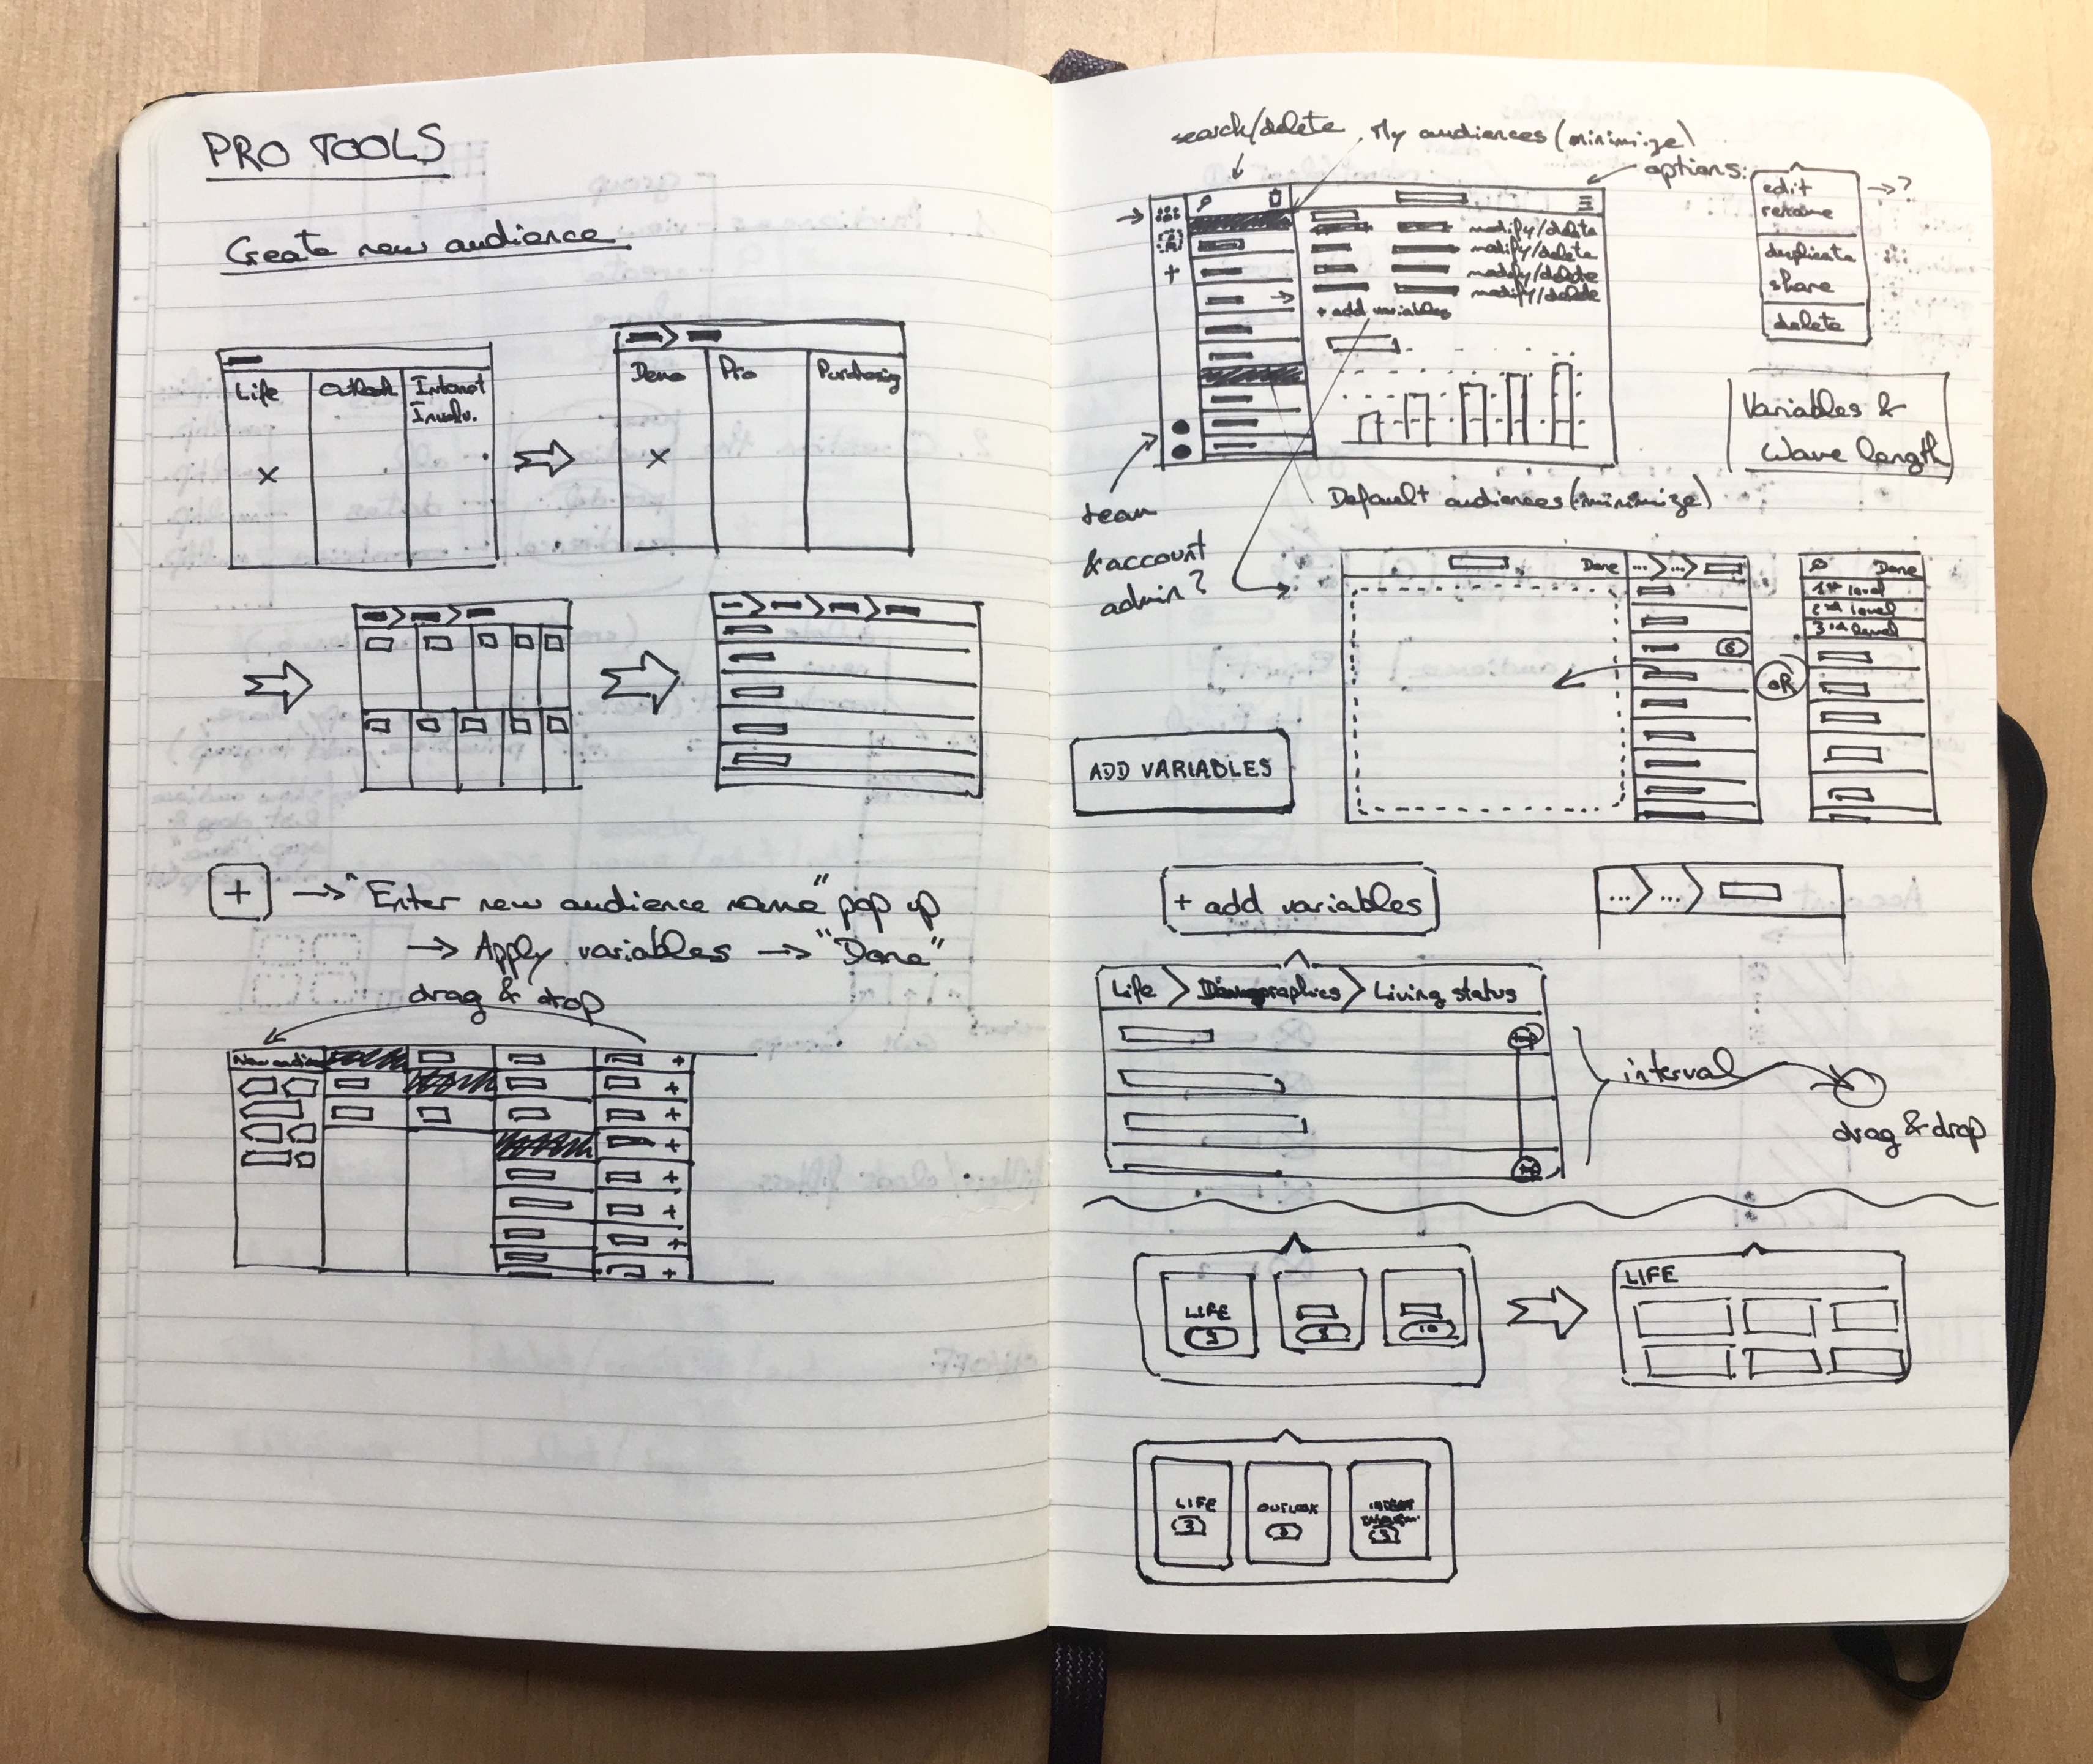 PRO TOOLS
Create new audience
Life
Outlook
Internet
Involv.
X
Demo
Pro
Purchasing
X
+ → "Enter new audience name" pop up
→ Apply variables → "Done"
drag & drop
New audience
+
+
+
+
+
+
+
+
search/delete
My audiences (minimize)
options:
edit
rename
→?
duplicate
share
delete
+
modify/delete
modify/delete
modify/delete
modify/delete
+ add variables
Variables &
Wave length
team
& account
admin?
Default audiences (minimize)
Done
...>...>
6
OR
Done
1st level
2nd level
3rd level
ADD VARIABLES
+ add variables
...>...>
Life > Demographics > Living status
interval
drag & drop
LIFE
10
LIFE
LIFE
3
OUTLOOK